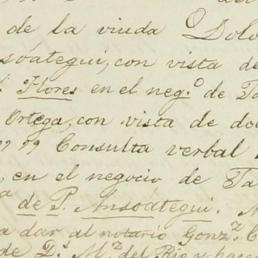 de la viuda Dolo
soátegui, con vista de
Flores en el neg.º de
Ortega, con vista de do
Consulta verbal
, en el negocio de Ta
de P. Ansoátegui.
a dar al notario Gonz.z C
de D.s M.a del Rio y hace